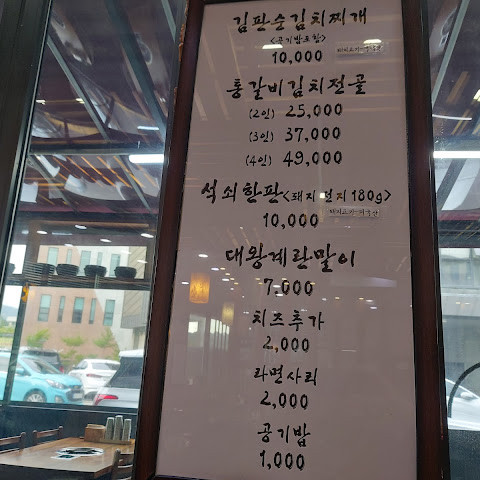 김판순김치찌개
<공기밥포함>
10,000
통갈비김치전골
(2인) 25,000
(3인) 37,000
(4인) 49,000
석쇠한판<돼지 뒷지 180g>
10,000
대왕계란말이
7,000
치즈추가
2,000
라면사리
2,000
공기밥
1,000